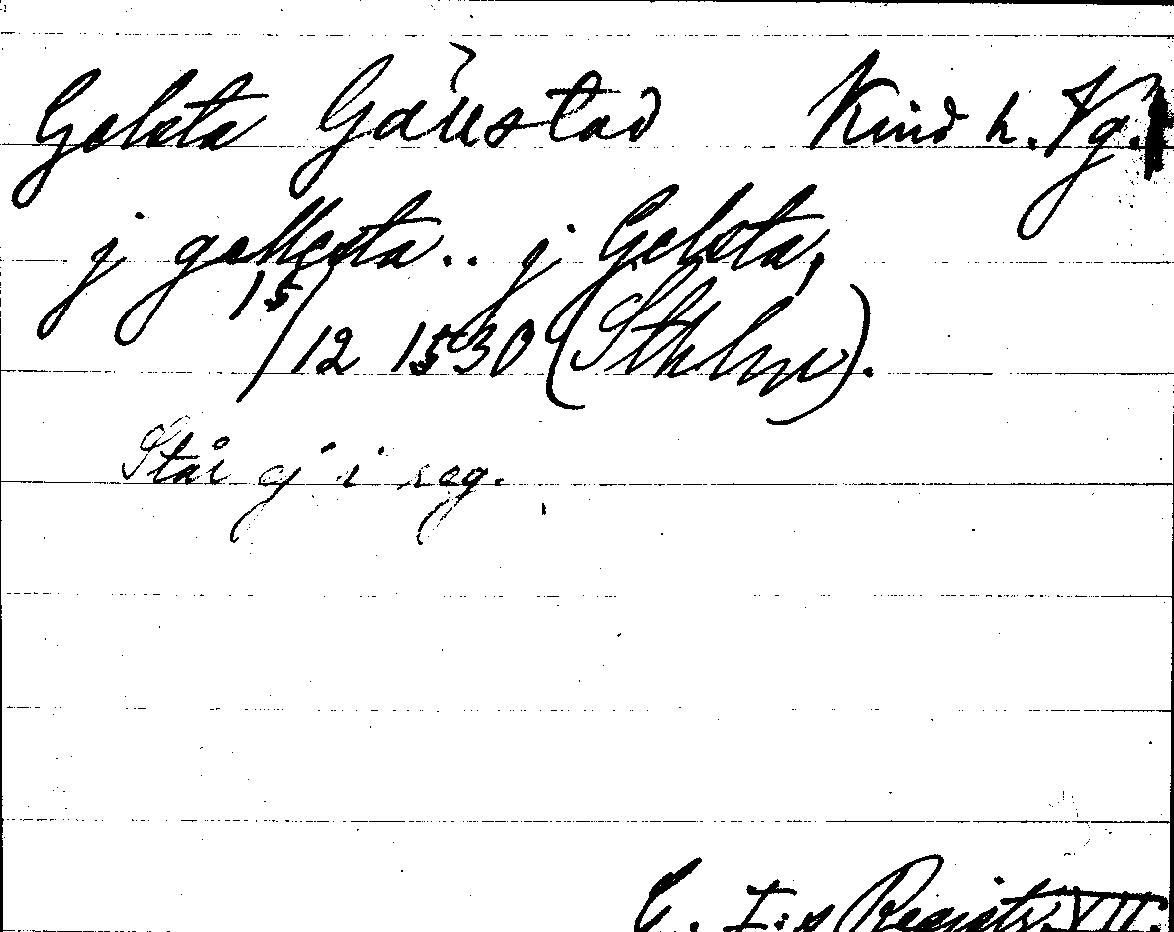 Gelsta Gällstad Kind h. Vg.
j gellesta.. j Gelsta,
15/12 1530 (Sthlm).
Står ej i reg.
G. I:s Registr. VII.